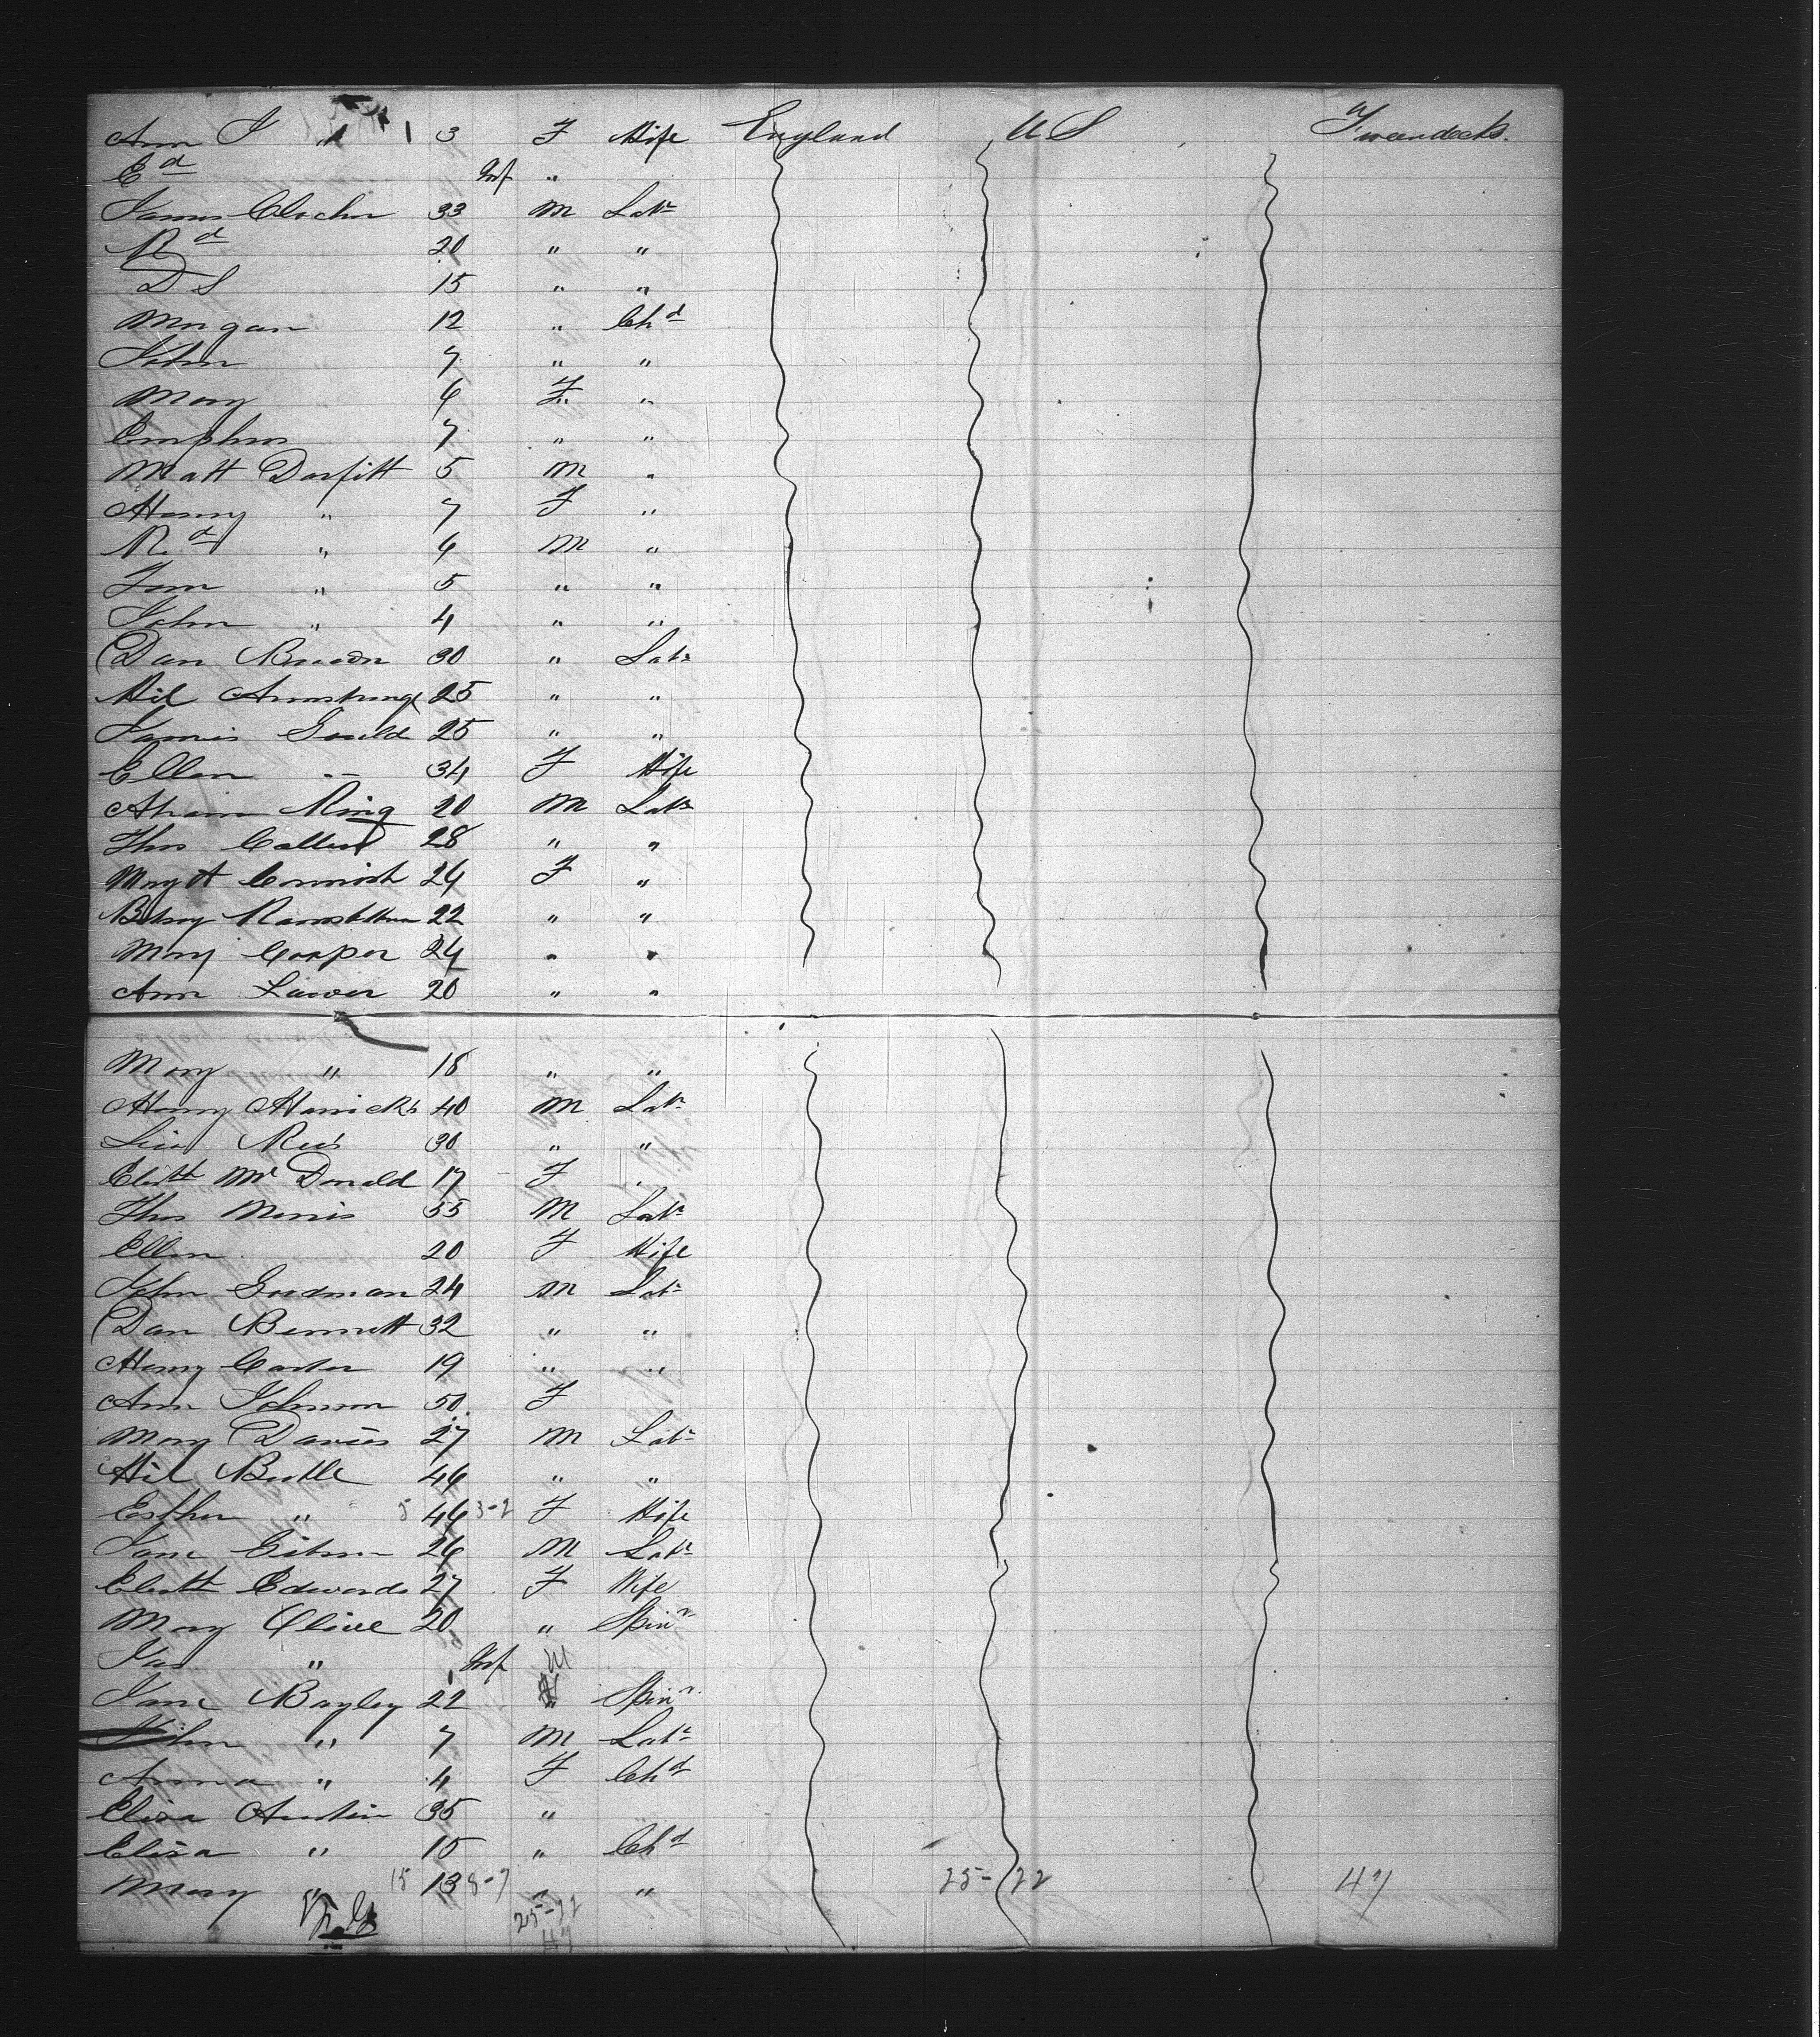 Ann J " 3 F Wife England U S Tweendecks.
Ed Inf "
James Clocker 33 M Labr
Rd 20 " "
D S 15 " "
Morgan 12 " Chd
John 7 " "
Mary 6 F "
7 " "
Matt Dorfitt 5 M "
Henry " 7 F "
Rd " 6 M "
Tom " 5 " "
John " 4 " "
Dan Brown 30 " Labr
Wil Armstrong 25 " "
James Gould 25 " "
Ellen " 34 F Wife
Abram Ring 20 M Labr
Thos 28 " "
Mary A Cornish 24 F "
Betsy Ramsbottom 22 " "
Mary Cooper 24 " "
Ann Lawer 20 " "
Mary " 18 " "
Henry 40 M Labr
Levi Rees 30 " "
Elizth Mc Donald 17 F
Thos Morris 55 M Labr
Ellen 20 F Wife
John Goodman 24 M Labr
Dan Bennett 32 " "
Henry Carter 19 " "
Ann Johnson 50 F
Mary Davies 27 M Labr
Wil Buttle 46 " "
Esther " 5 46 3-2 F Wife
Jane Gibson 26 M Labr
Elizth Edwards 27 F Wife
Mary Clive 20 " Spinr
Jas " Inf M
Jane Bayley 22 " Spinr
John " 7 M Labr
Anna " 4 F Chd
Eliza Austin 35 "
Eliza " 15 " Chd
Mary " 15 13 8-7 " " 25-22 47
25-22
47